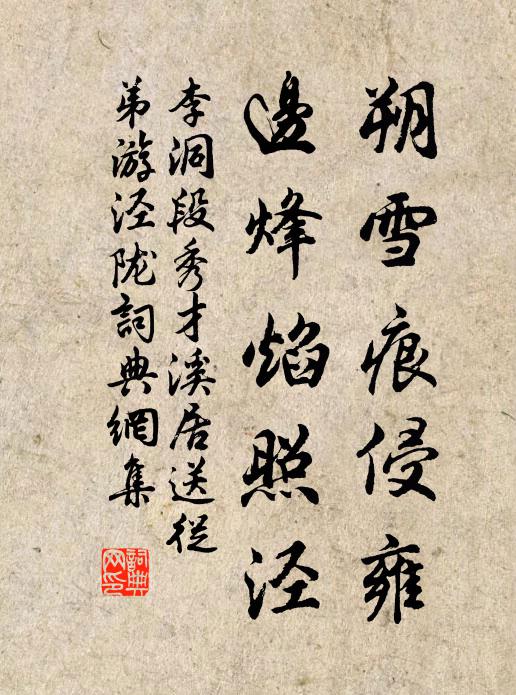 朔雪痕侵雍
邊烽焰照泾
李洞段秀才溪居送從
弟游泾陇詞典網集
詞典网印